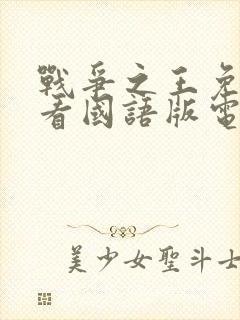 戰爭之王免
看國語版電
美少女聖斗士